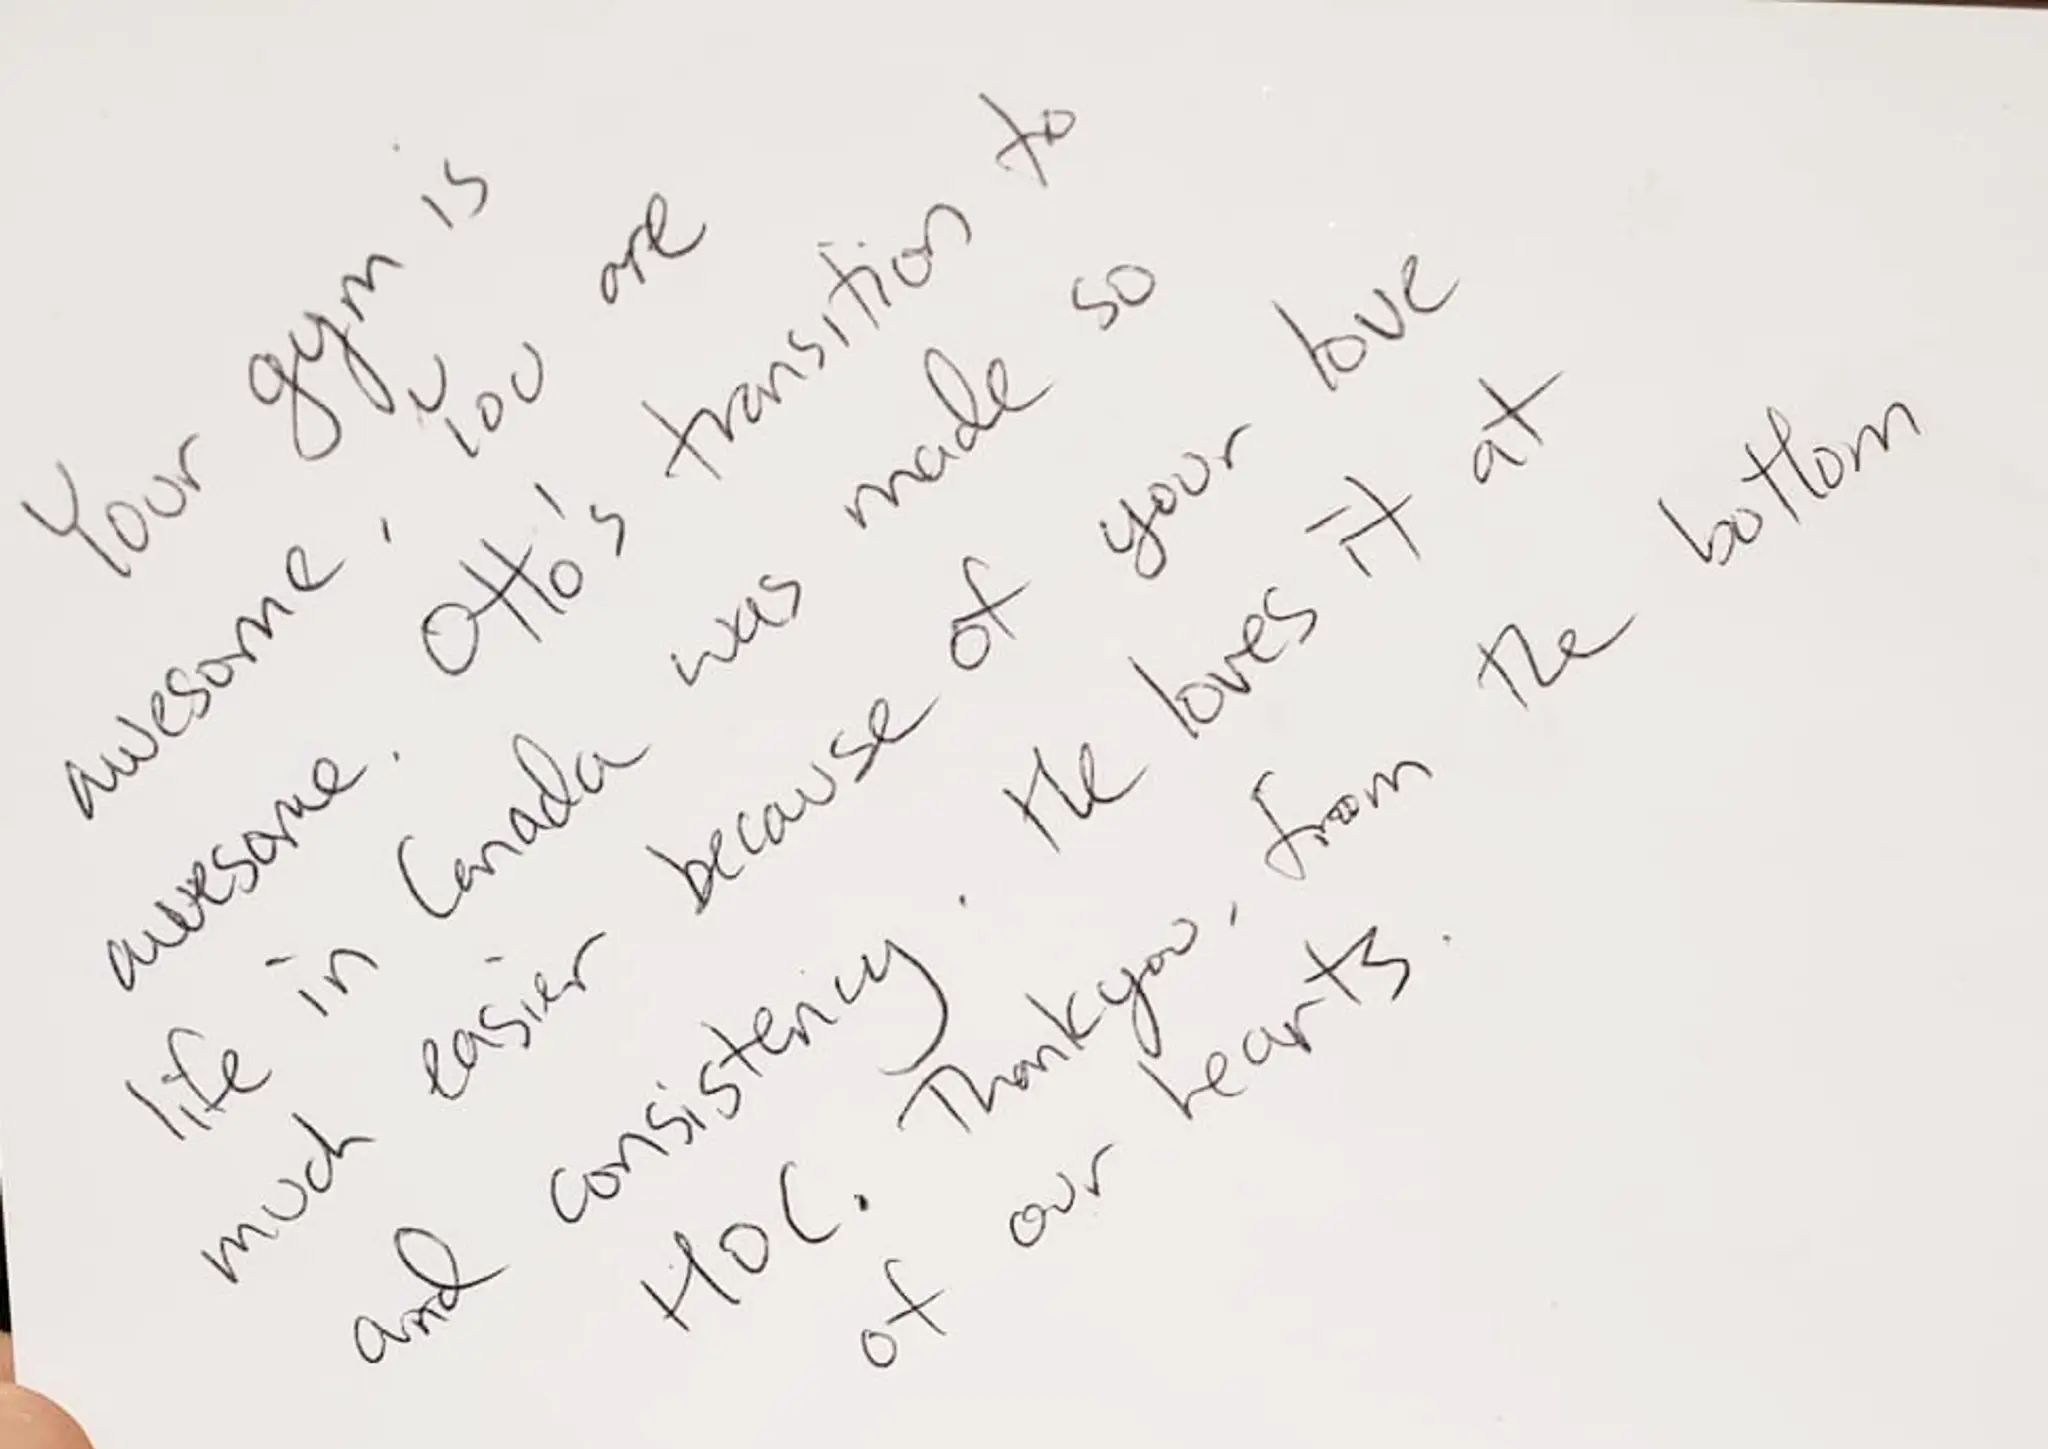 Your gym is
awesome, You are
awesome. Otto's transition to
life in Canada was made so
much easier because of your love
and consistency. He loves it at
HOC. Thankyou, from the bottom
of our hearts.